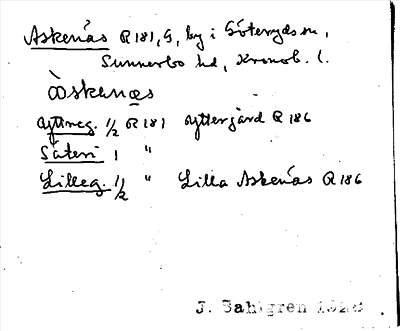 Askenäs R 181, G, by i Göteryds sn,
Sunnerbo hd, Kronob. l.
òskenæs
Ytterg. 1/2 R 181 Yttergård R 186
Säteri 1 "
Lilleg. 1/2 " Lilla Askenäs R 186
J. Sahlgren 1928